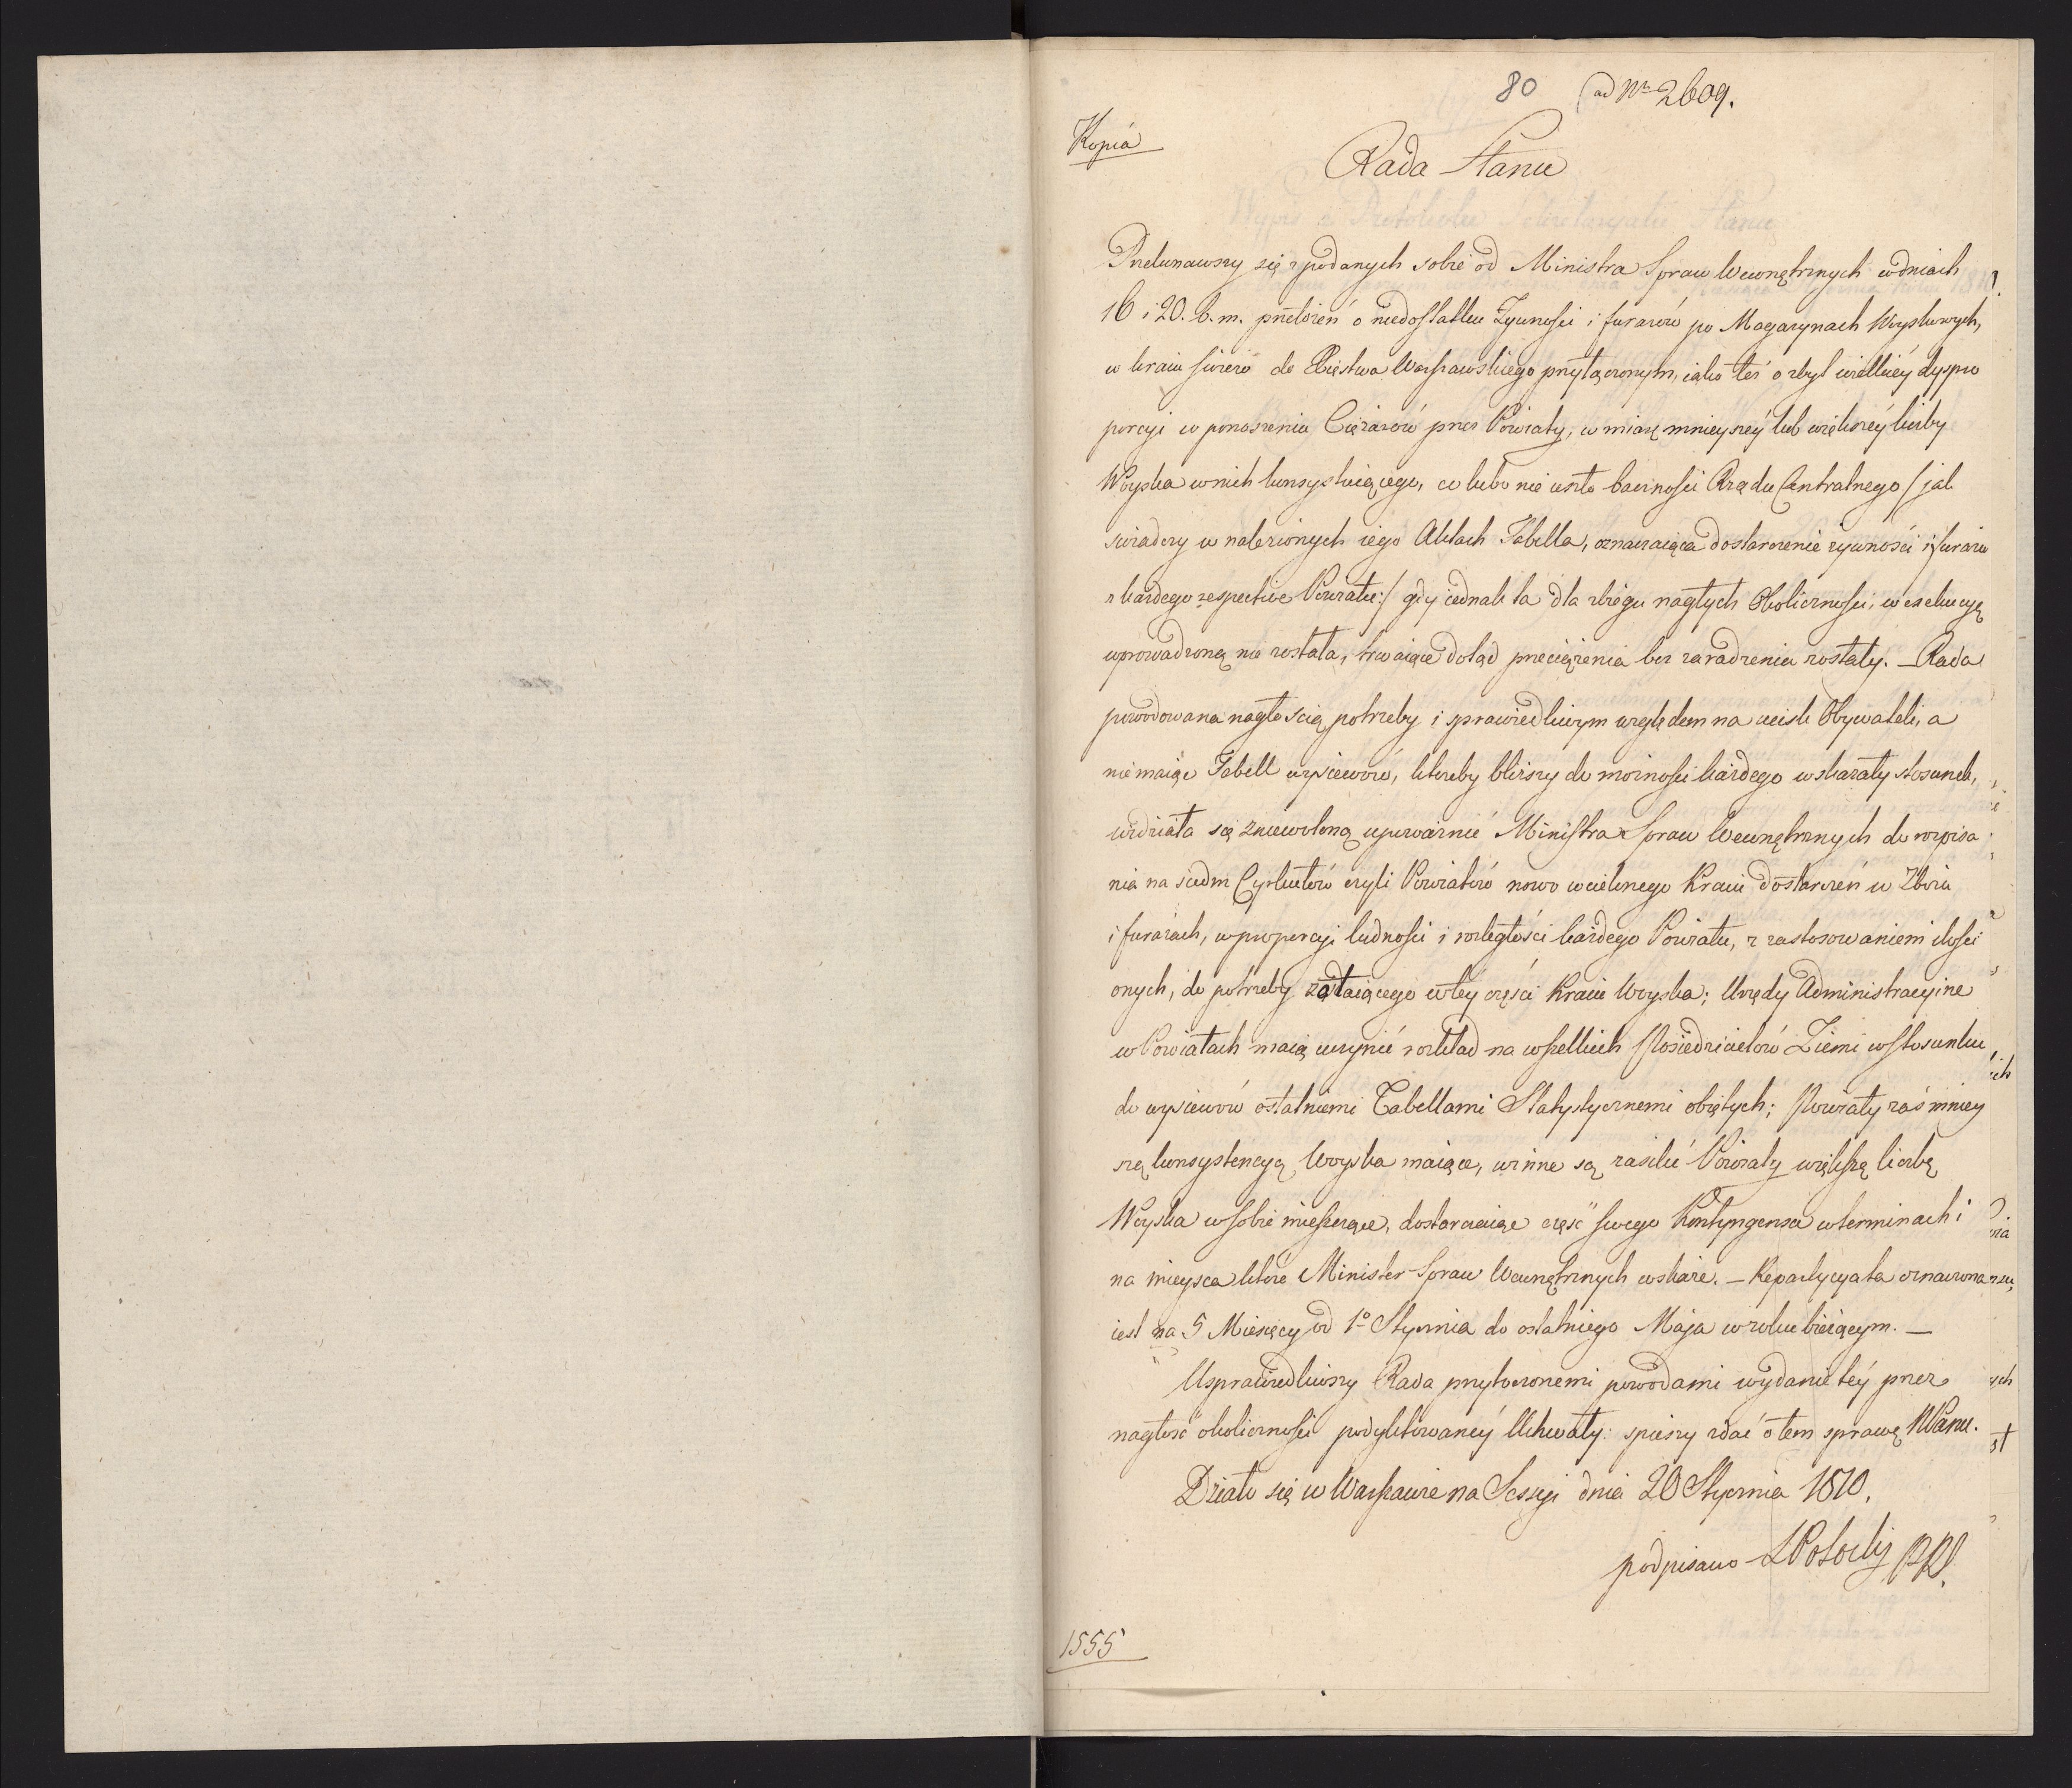 80 ad Nr 2609.
Kopia
Rada Stanu
Przekonawszy się z podanych sobie od Ministra Spraw Wewnętrznych w dniach
16 i 20. b. m. przełożeń o niedostatku Żywności i furażów po Magazynach Woyskowych,
w kraiu świeżo do Xięstwa Warszawskiego przyłączonym, iako też o zbyt wielkiéy dyspro
porcyi w ponoszeniu Ciężarów przez Powiaty, w miarę mnieyszéy lub większéy liczby
Woyska w nich konsystuiącego, co lubo nie uszło baczności Rządu Centralnego /: jak
świadczy w nalezionych iego Aktach Tabella, oznaczaiąca dostarczenie żywności i furażu
z każdego respective Powiatu :/ gdy iednak ta dla zbiegu nagłych Okoliczności, w exekucyę
wprowadzoną nie została, trwaiące dotąd przeciążenia bez zaradzenia zostały. — Rada
powodowana nagłością potrzeby i sprawiedliwym względem na ucisk Obywateli, a
nie maiąc Tabell wysiewów, któreby bliższy do możności każdego wskazały stosunek,
widziała się zniewoloną upoważnić Ministra Spraw Wewnętrznych do rozpisa
nia na siedm Cyrkułów czyli Powiatów nowo wcielonego Kraiu dostarczeń w Zbożu
i furażach, w proporcyi ludności i rozległości każdego Powiatu, z zastosowaniem ilości
onych, do potrzeby zostaiącego w téy części Kraiu Woyska; Urzędy Administracyine
w Powiatach maią uczynić rozkład na wszelkich Posiedzicielów Ziemi w stosunku
do wysiewów ostatniemi Tabellami Statystycznemi obiętych; Powiaty zaś mniey
szą konsystencyą Woyska maiące, winne są zasilić Powiaty większą liczbę
Woyska w sobie mieszczące, dostarczaiąc część swego Kontyngensu w terminach i
na mieysca które Minister Spraw Wewnętrznych wskaże. — Repartycya ta oznaczona
iest na 5 Miesięcy od 1o Stycznia do ostatniego Maja w roku bieżącym. —
Usprawiedliwszy Rada przytoczonemi powodami wydanie téy przez
nagłość okoliczności podyktowanéy Uchwały: spieszy zdać o tem sprawę WPanu.
Działo się w Warszawie na Sessyi dnia 20 Stycznia 1810.
podpisano SPotocki PR.
1555